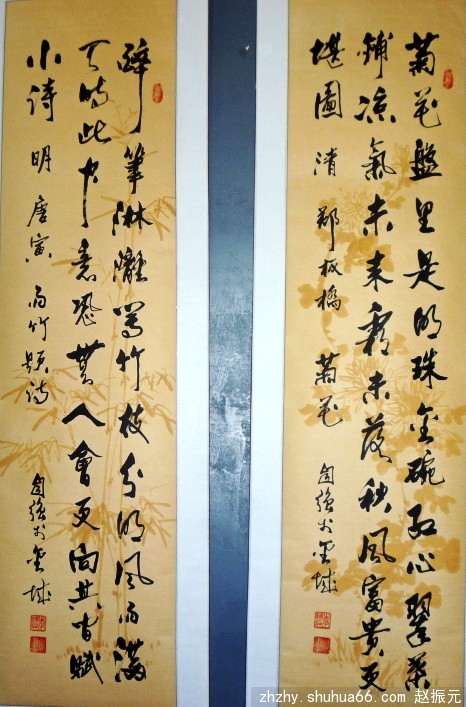 菊花盤里是明珠金碗紅心翠葉
鋪凉氣未来霜未落秋風富貴更
堪圖 清 鄭板橋 菊花
自強於金城
醉筆淋灕寫竹枝分明風雨滿
天時此中意恐無人會更向其間賦
小詩 明 唐寅 雨竹題詩
自強於金城
zhzhy.shuhua66.com 赵振元